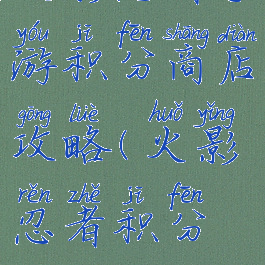 yóu jī fēn shāng diàn
游积分商店
gōng lüè huǒ yǐng
攻略(火影
rěn zhě jī fēn
忍者积分